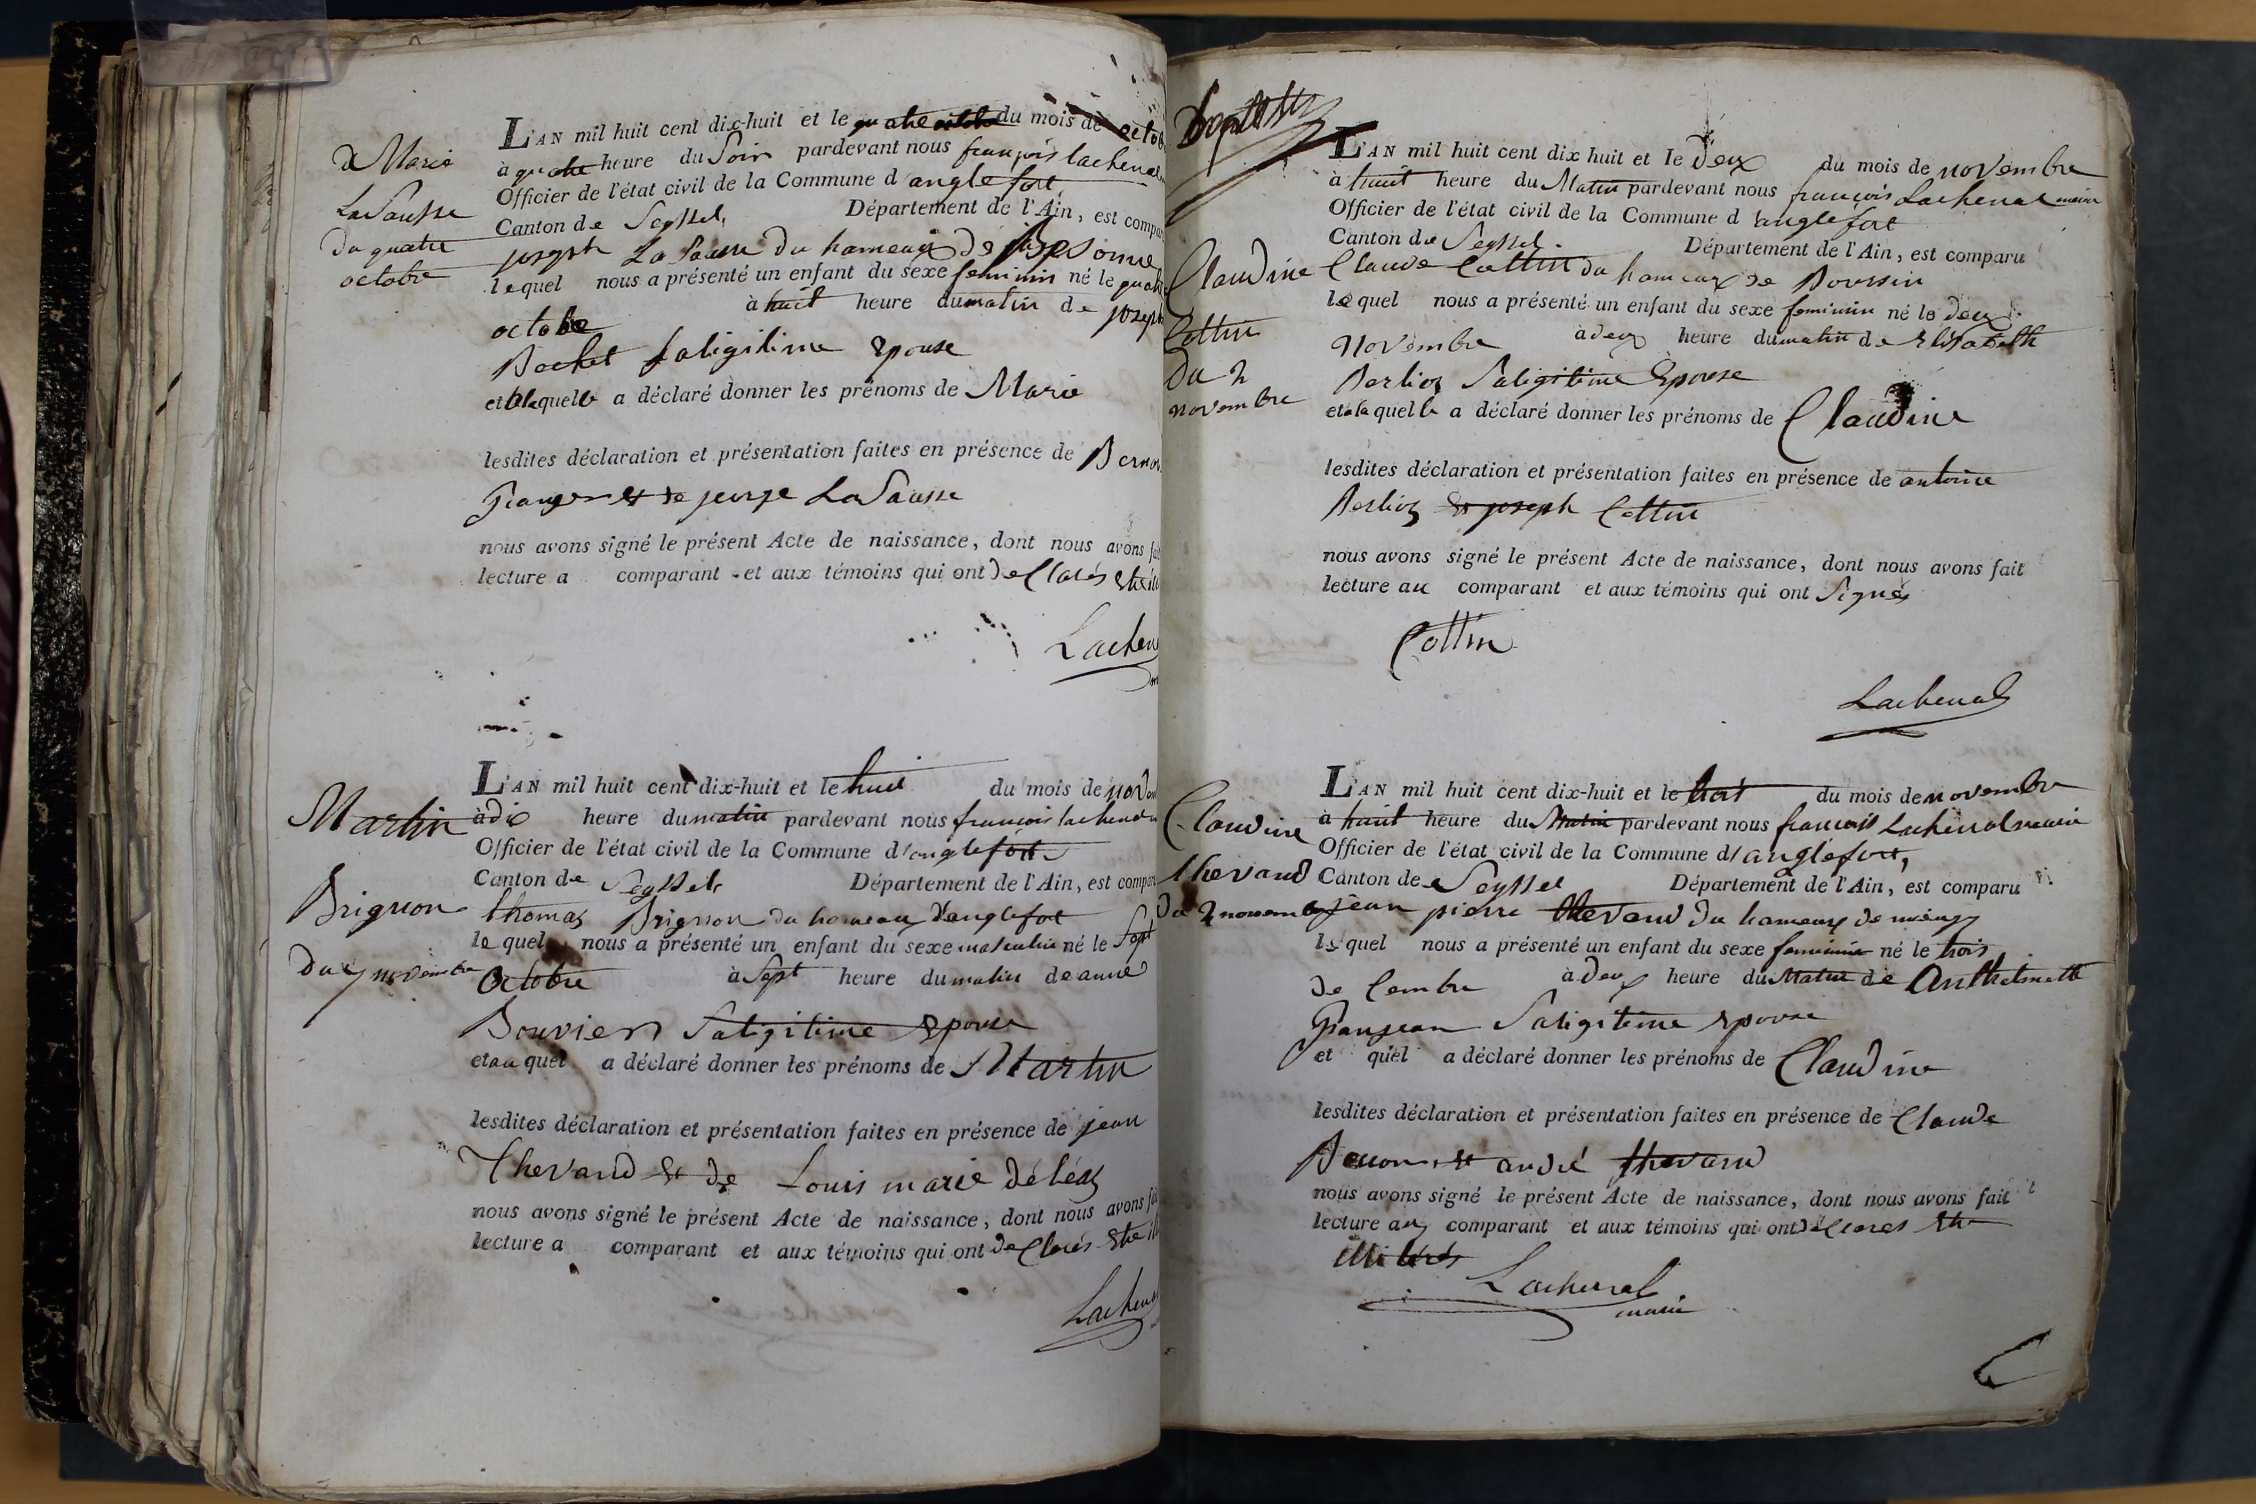 Marie
LaSausse
du quatre
octobre
L'AN mil huit cent dix-huit et le quatre du mois de octob
à quatre heure du Soir pardevant nous françois lachenal
Officier de l'état civil de la Commune d'anglefort
Canton de Seyssel Département de l'Ain, est compar
joseph LaSausse du hameaux de
lequel nous a présenté un enfant du sexe feminin né le quatre
octobre à huit heure du matin de joseph
Bochet Saligitime Epouse
et alaquelle a déclaré donner les prénoms de Marie
lesdites déclaration et présentation faites en présence de
Granger et de jeorge LaSausse
nous avons signé le présent Acte de naissance, dont nous avons fait
lecture a comparant et aux témoins qui ont declarés
Lachen
Martin
Brignon
du 7 novembre
L'AN mil huit cent dix-huit et le huit du mois de nov
à dix heure du matin pardevant nous françois lachenal
Officier de l'état civil de la Commune d'anglefort
Canton de Seyssel Département de l'Ain, est compar
thomas Brignon du hameau d'anglefort
lequel nous a présenté un enfant du sexe masculin né le Sept
Octobre à Sept heure du matin de anne
Bouvier Saligitime Epouse
et au quel a déclaré donner les prénoms de Martin
lesdites déclaration et présentation faites en présence de jean
Thevand et de Louis marie déléaz
nous avons signé le présent Acte de naissance, dont nous avons fai
lecture a comparant et aux témoins qui ont declarés
Lachen
Claudine
Cottin
du 2
novembre
L'AN mil huit cent dix huit et le deux du mois de novembre
à huit heure du Matin pardevant nous françois Lachenal maire
Officier de l'état civil de la Commune d'anglefort
Canton de Seyssel. Département de l'Ain, est comparu
Claude Cottin du hameaux de Boursin
lequel nous a présenté un enfant du sexe feminin né le deux
novembre à deux heure du matin de Elisabeth
Berlioz Saligitime Epouse
et alaquelle a déclaré donner les prénoms de Claudine
lesdites déclaration et présentation faites en présence de antoine
Berlioz et joseph Cottin
nous avons signé le présent Acte de naissance, dont nous avons fait
lecture au comparant et aux témoins qui ont Signés
Cottin
Lachenal
Claudine
thevand
du 2 novemb
L'AN mil huit cent dix-huit et le trois du mois de novembre
à huit heure du Matin pardevant nous francois Lachenal maire
Officier de l'état civil de la Commune d'anglefort,
Canton de Seyssel Département de l'Ain, est comparu
jean pierre thevand du hameaux de
lequel nous a présenté un enfant du sexe feminin né le trois
de Cembre à deux heure du Matin de Anthelmette
Granjean Saligitime Epouse
et quel a déclaré donner les prénoms de Claudine
lesdites déclaration et présentation faites en présence de Claude
et andré thevand
nous avons signé le présent Acte de naissance, dont nous avons fait
lecture aux comparant et aux témoins qui ont declarés
illiterés
Lachenal
maire